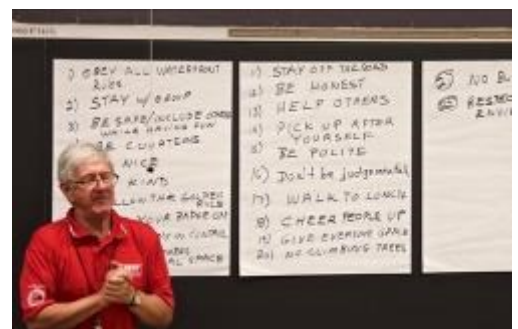 1) OBEY ALL WATERFRONT
RULES
2) STAY W/ GROUP
3) BE SAFE/INCLUDE OTHERS
WHILE HAVING FUN
BE COURTEOUS
NICE
KIND
THE GOLDEN
RULE
YOUR BADGE ON
IN CONTROL
SPACE
11) STAY OFF THE ROAD
12) BE HONEST
13) HELP OTHERS
14) PICK UP AFTER
YOURSELF
15) BE POLITE
16) Don't be judgmental
17) WALK TO LUNCH
18) CHEER PEOPLE UP
19) GIVE EVERYONE SPACE
20) NO CLIMBING TREES
NO